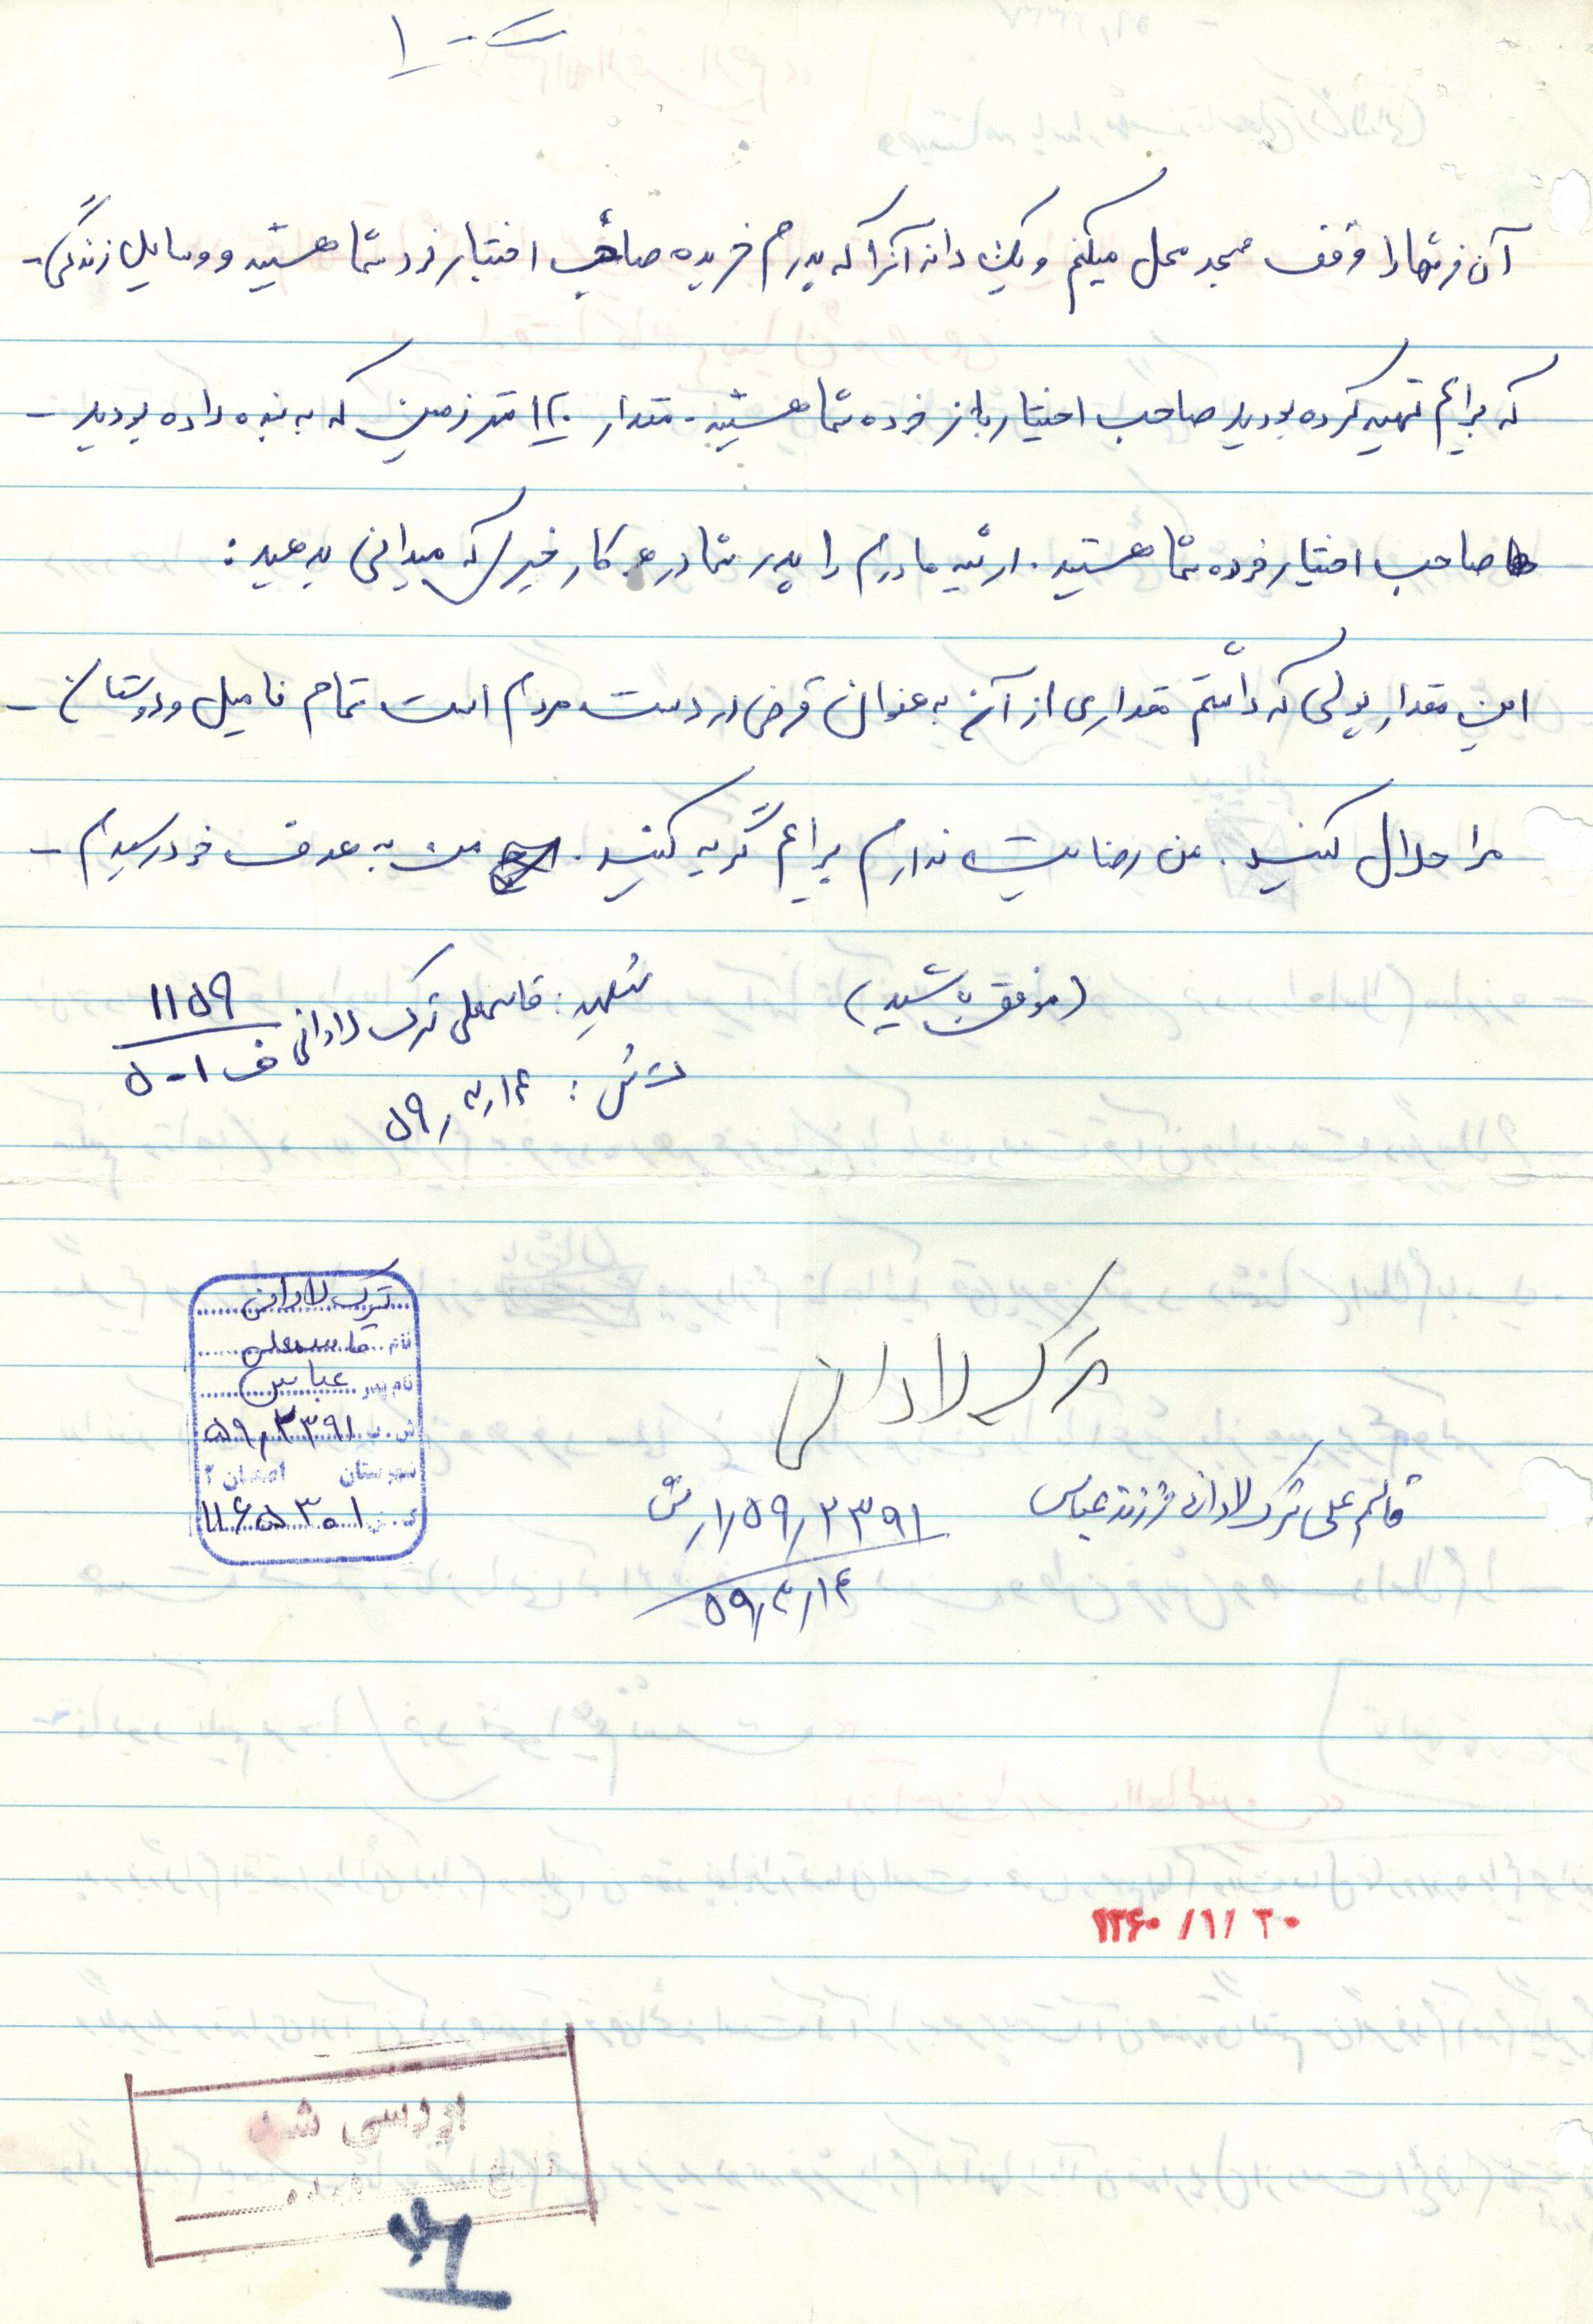 آن فرشها را وقف مسجد محل میکنم و یک دانه آنرا که پدرم خریده صاحب اختیار خود شما هستید و وسایل زندگی -
که برایم تهیه کرده بودید صاحب اختیار باز خوده شما هستید. مقدار ۱۲۰ متر زمین که به بنده داده بودید -
صاحب اختیار خوده شما هستید. ارثیه مادرم را پدر شما در هر کار خیر که میدانی بدهید :
این مقدار پولی که داشتم مقداری از آن به عنوان قرض در دست مردم است تمام فامیل و دوستان -
مرا حلال کنید. من رضایت ندارم برایم گریه کنید. من به هدف خود رسیدم -
(موفق باشید)
شهید: قاسمعلی ترک لادانی
۱۱۵۹
ف ۵۰۱
ت ش : ۵۹٫۳٫۱۴
ترک لادانی
نام قاسمعلی
نام پدر عباس
ش.پ ۵۹٫۲۳۹۱
شهرستان اصفهان ۲
۱۱۶۵۳۰۱
ترک لادانی
قاسم علی ترک لادانی فرزند عباس
۱٫۵۹٫۲۳۹۱ ش
۵۹٫۳٫۱۴
۱۳۶۰/۱/۲۰
بررسی شد